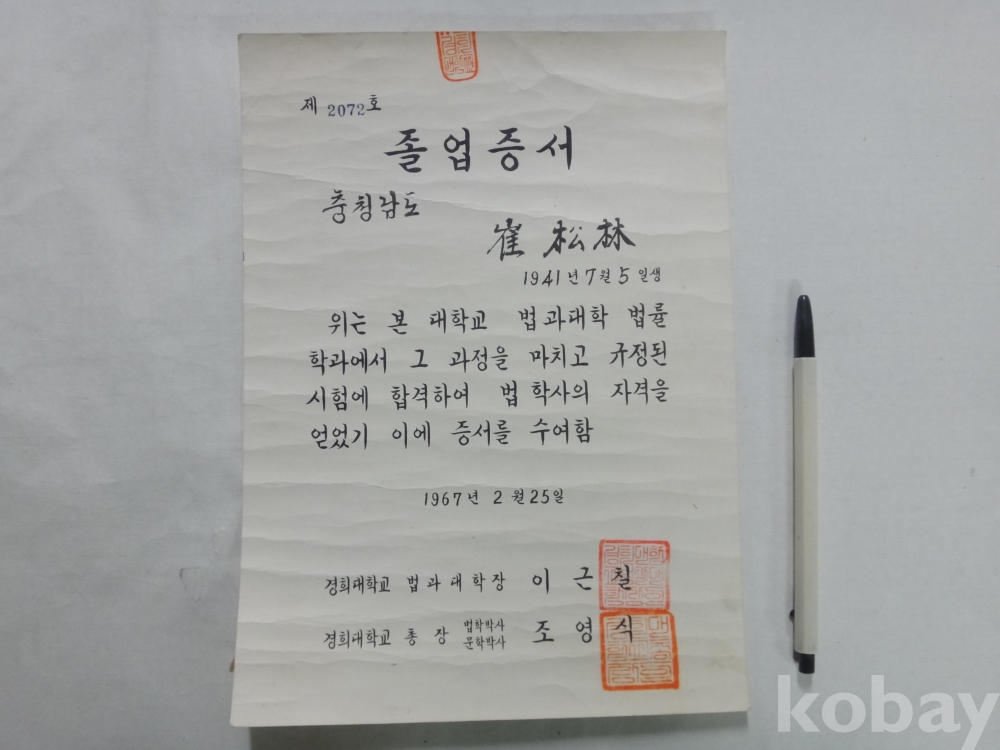 제 2072호
졸업증서
충청남도
崔松林
1941년 7월 5일생
위는 본 대학교 법과대학 법률
학과에서 그 과정을 마치고 규정된
시험에 합격하여 법학사의 자격을
얻었기 이에 증서를 수여함
1967년 2월 25일
경희대학교 법과대학장 이근칠
경희대학교 총장 법학박사 문학박사 조영식
kobay